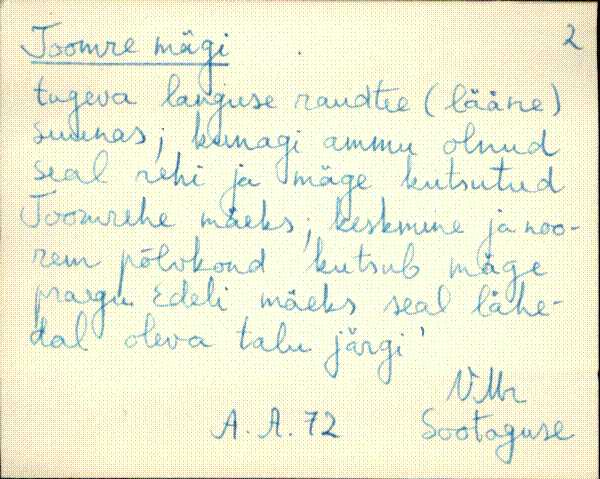 Toomre mägi 2
tugeva languse raudtee (lääne)
suunas; kunagi ammu olnud
seal rehi ja mäge kutsutud
Toomrehe mäeks; keskmine ja noo-
rem põlvkond kutsub mäge
praegu Edeli mäeks seal lähe-
dal oleva talu järgi'
VMr
A. A. 72 Sootaguse